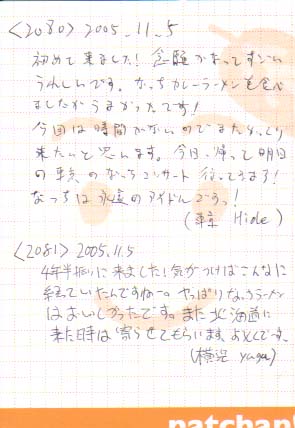 〈2080〉 2005.11.5
初めて来ました！念願かなってすごい
うれしいです。なっちカレーラーメンを食べ
ましたがうまかったです！
今回は時間がないのでまたゆっくり
来たいと思います。今日、帰って明日
の東京のなっちコンサート行ってきます！
なっちは永遠のアイドルでうっ！
(東京 Hide)
〈2081〉 2005.11.5
4年半振りに来ました！気がつけばこんなに
経っていたんですねー。やっぱりなっちラーメン
はおいしかったです。また北海道に
来た時は寄らせてもらいます。よろしくです。
(横浜 yuga)
patchan